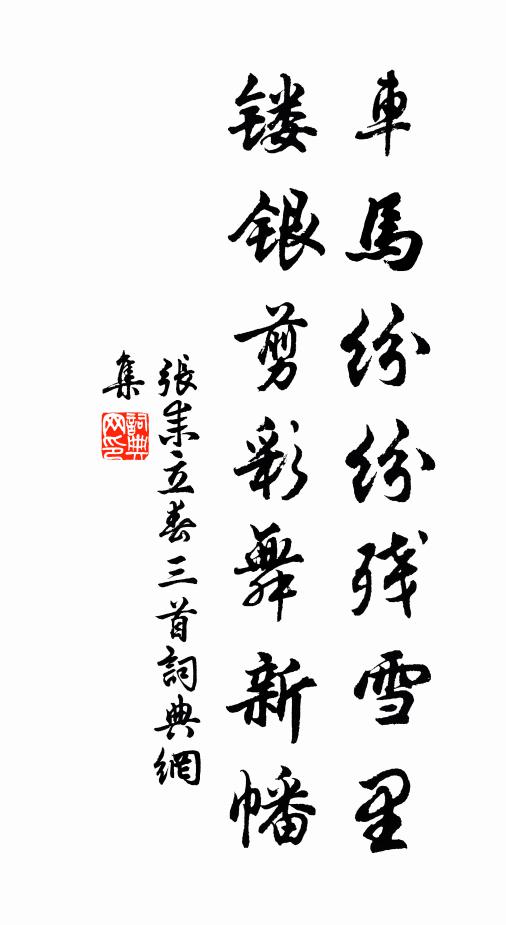 車馬紛紛残雪里
镂银剪彩舞新幡
張耒立春三首詞典網
集
詞典网印